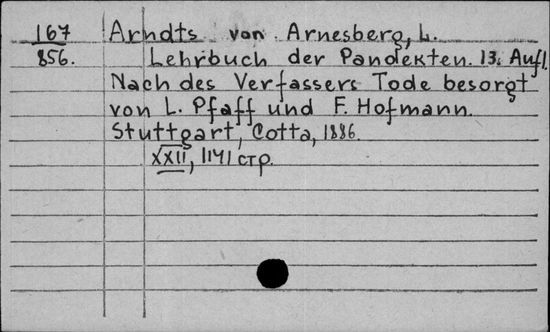 167 Arndts von Arnesberg, L.
856. Lehrbuch der Pandekten. 13. Aufl.
Nach des Verfassers Tode besorgt
von L. Pfaff und F. Hofmann.
Stuttgart, Cotta, 1886.
XXII, 1141 стр.